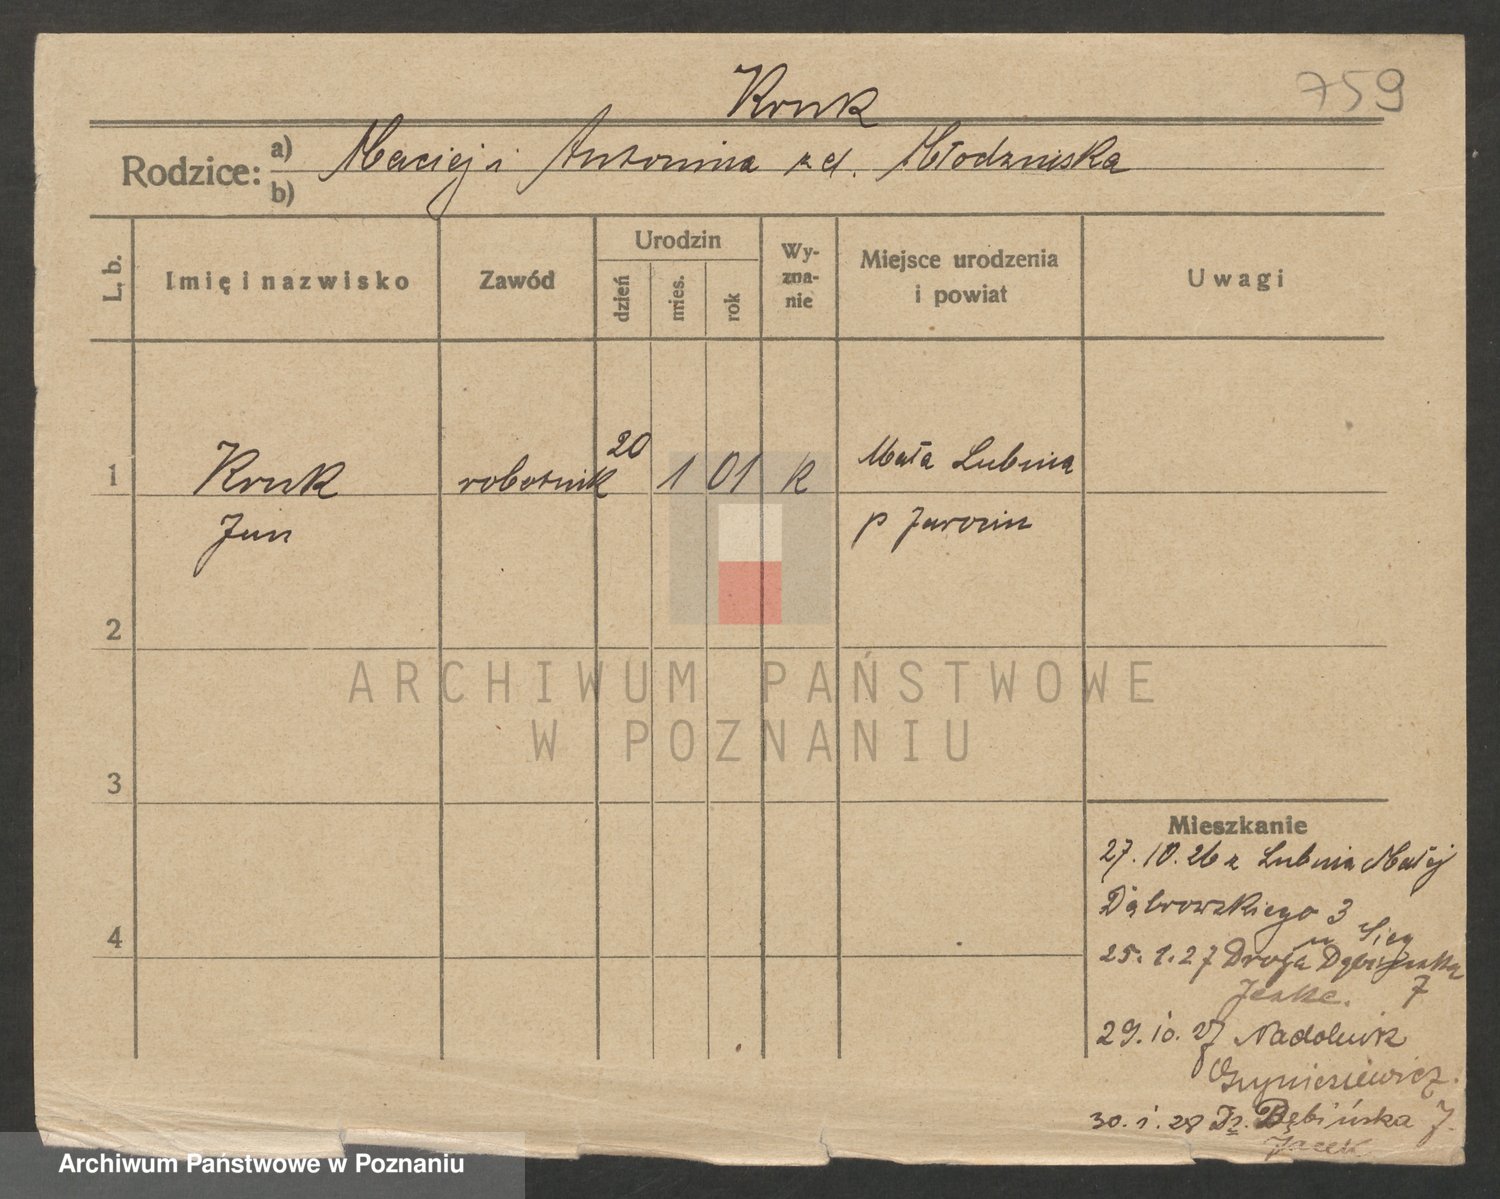 759
Kruk
Rodzice: a) Maciej i Antonina z d. Młodzńiska
b)
L. b.
Imię i nazwisko
Zawód
Urodzin
dzień
mies.
rok
Wy-
zna-
nie
Miejsce urodzenia
i powiat
Uwagi
1
Kruk
robotnik
20
1
01
k
Mała Lubinia
Jan
p Jarocin
2
3
4
Mieszkanie
27.10.26 z Lubinia Małej
Dąbrowskiego 3
25.1.27 Droga Dębińska
7
29.10.27 Nadolnik
30.1.28 Dr. Dębińska 7.
Jacek
ARCHIWUM PAŃSTWOWE
W POZNANIU
Archiwum Państwowe w Poznaniu